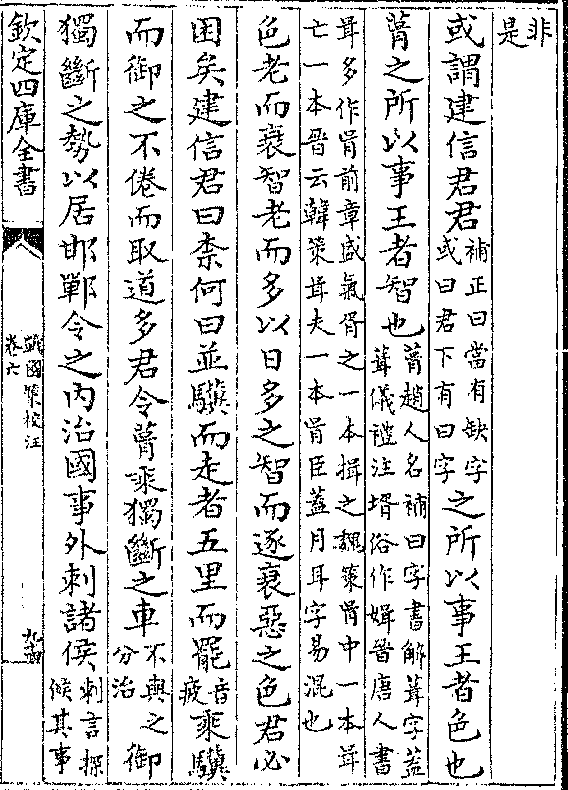 非
是
或謂建信君君補正曰當有缺字
或曰君下有曰字之所以事王者色也
葺之所以事王者智也葺趙人名補曰字書解葺字葢
葺儀禮注壻俗作婿晉唐人書
耳多作胥前章盛氣胥之一本揖之魏策胥中一本葺
亡一本晉云韓策葺夫一本胥臣葢月耳字易混也
色老而衰智老而多以日多之智而逐衰惡之色君必
困矣建信君曰柰何曰並驥而走者五里而罷音
疲乘驥
而御之不倦而取道多君令葺乘獨斷之車不與之御
分治
獨斷之勢以居邯鄲令之内治國事外刺諸侯刺言探
候其事
欽定四庫全書
戰國策校注
卷六
九四